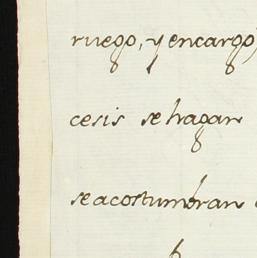 ruego, y encargo,
cesis se hagan
se acostumbran